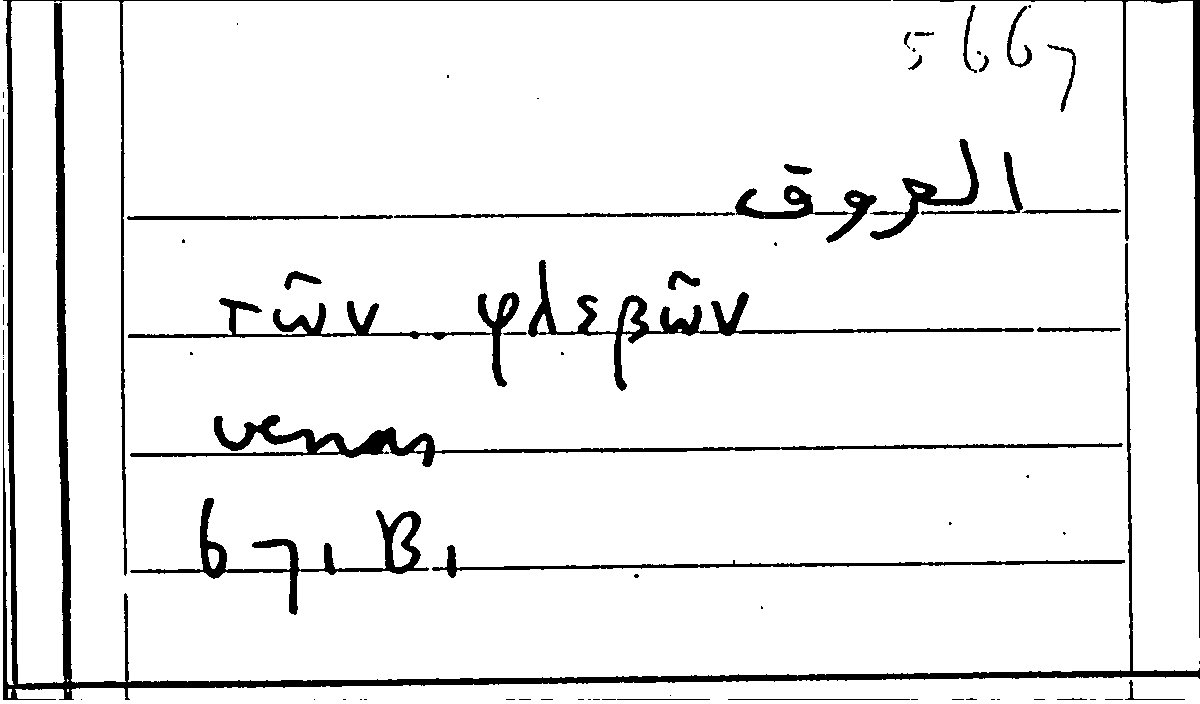 5667
العروق
τῶν .. φλεβῶν
venas
671 B 1